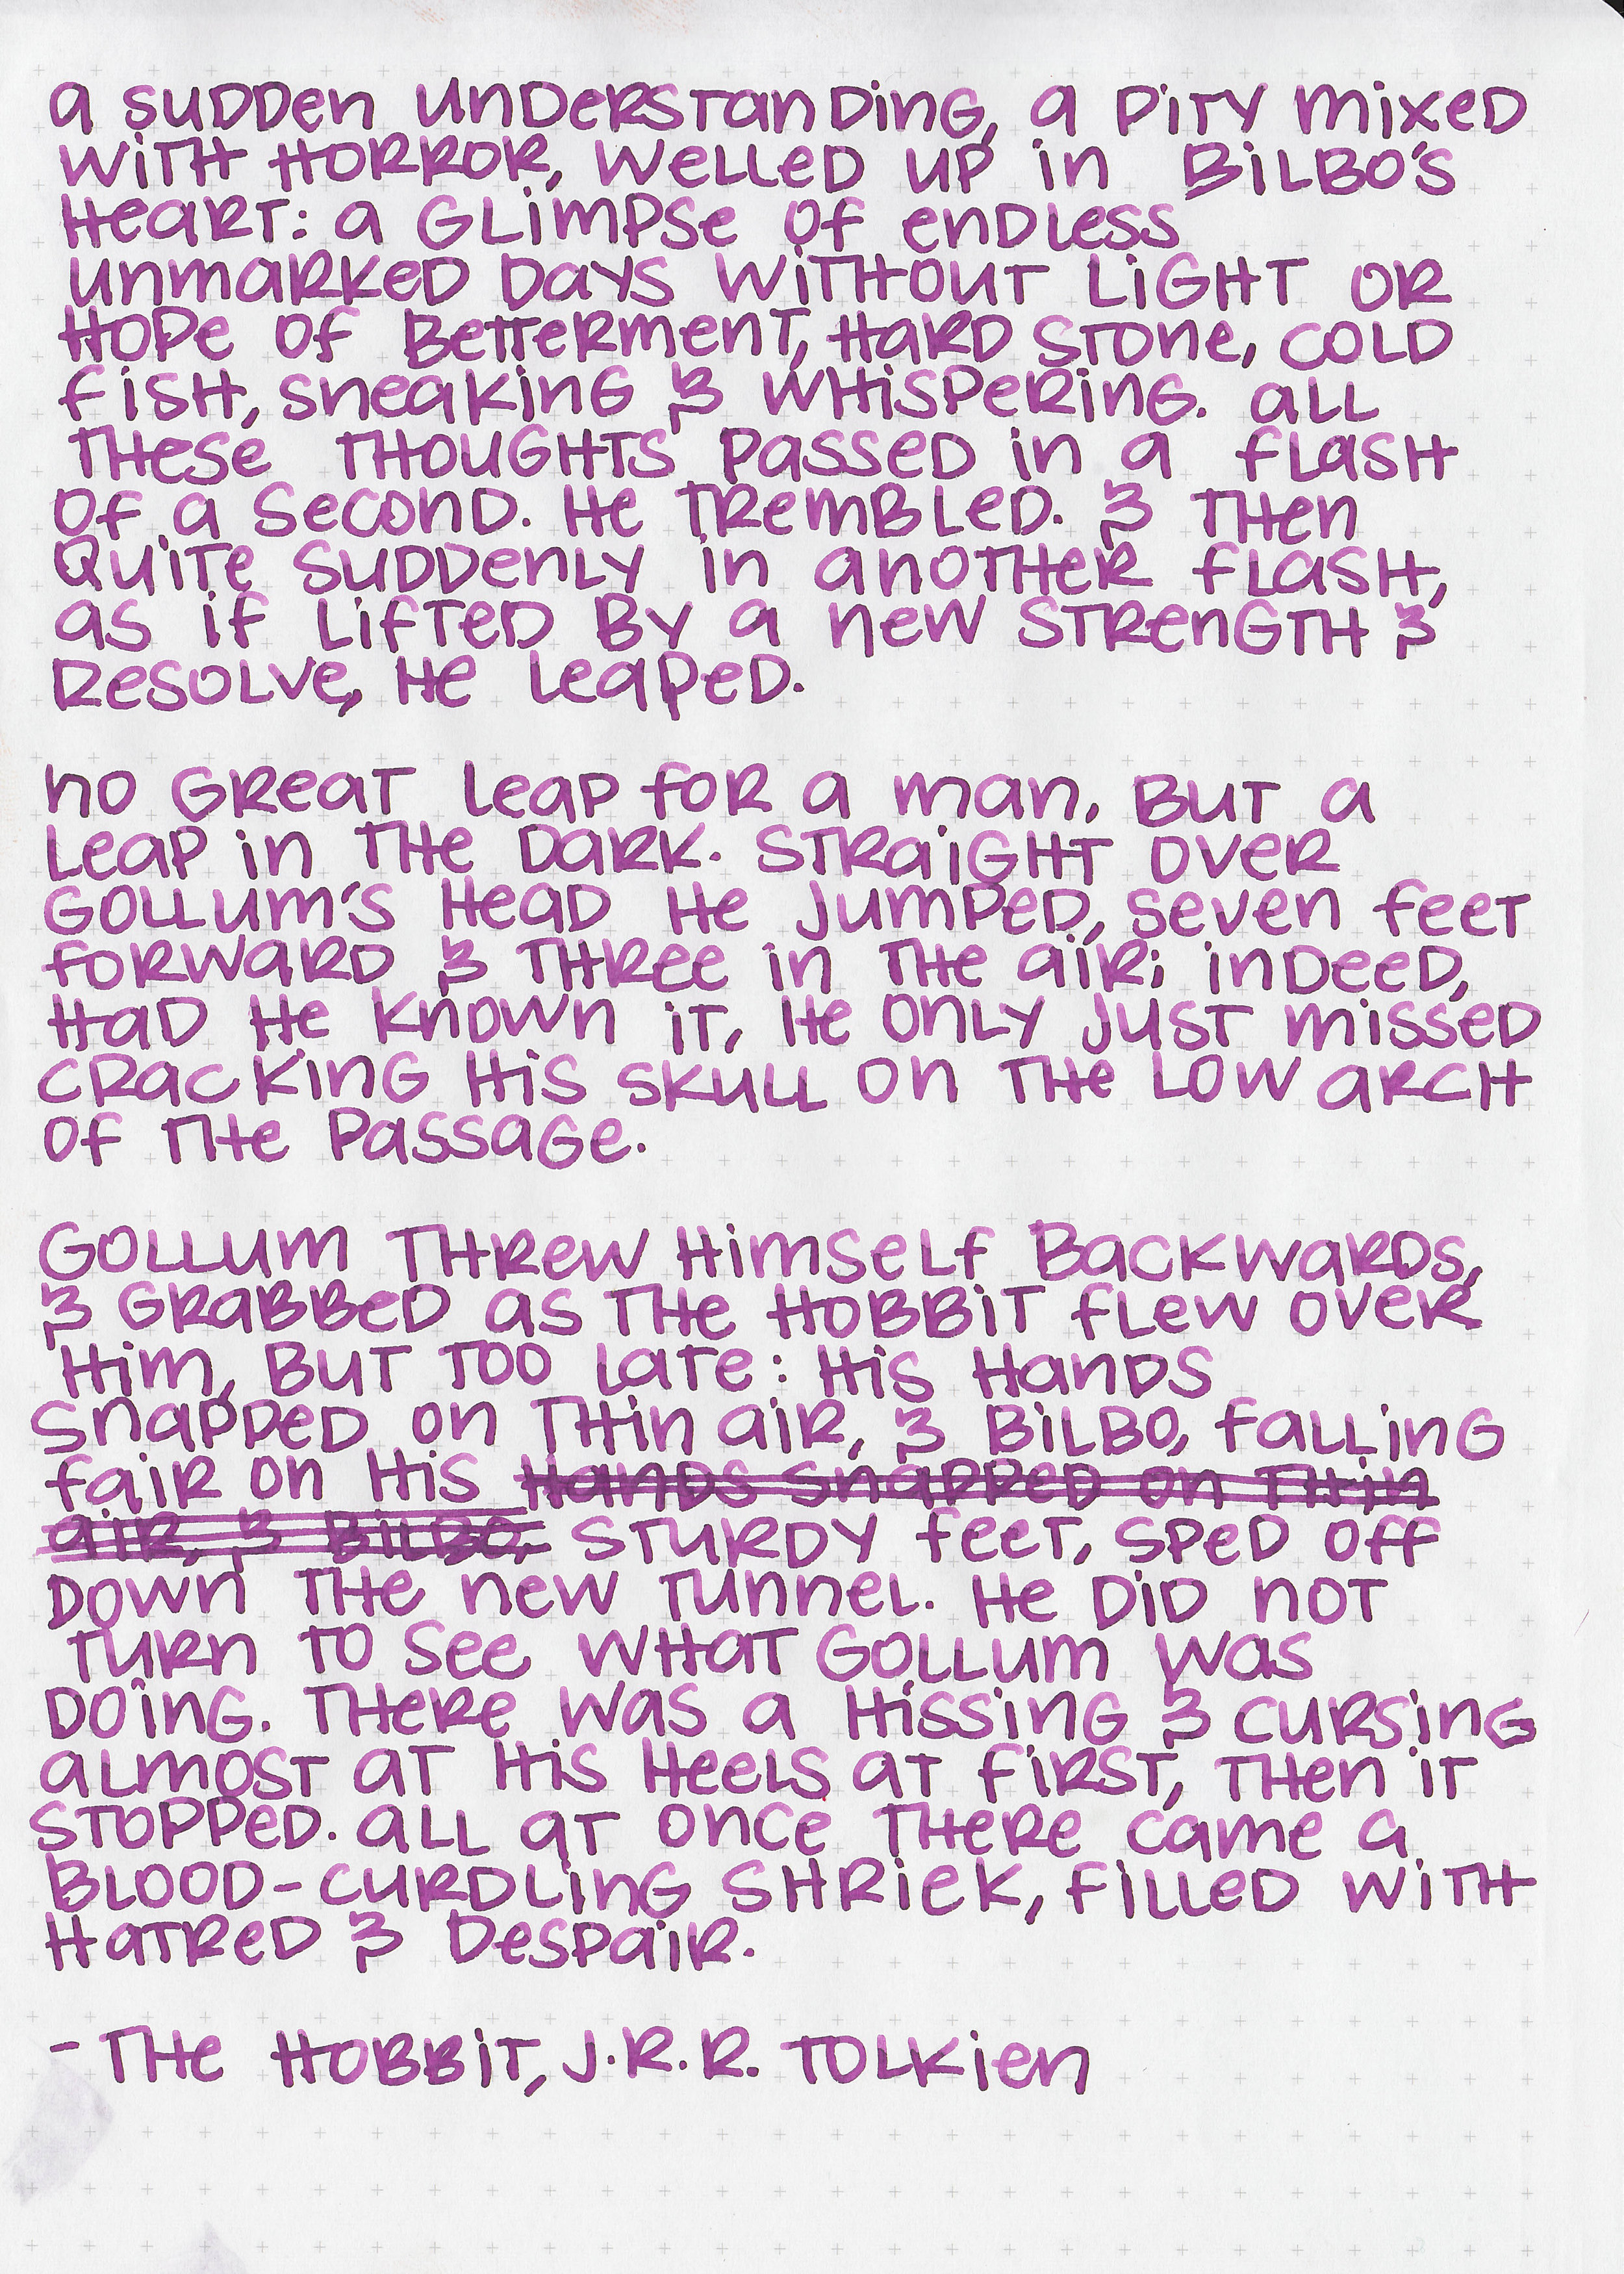 a sudden understanding, a pity mixed
with horror, welled up in Bilbo's
heart: a glimpse of endless
unmarked days without light or
hope of betterment, hard stone, cold
fish, sneaking & whispering. all
these thoughts passed in a flash
of a second. He trembled. & then
quite suddenly in another flash,
as if lifted by a new strength &
resolve, he leaped.
no great leap for a man, but a
leap in the dark. Straight over
Gollum's head he jumped, seven feet
forward & three in the air; indeed,
had he known it, he only just missed
cracking his skull on the low arch
of the passage.
Gollum threw himself backwards,
& grabbed as the hobbit flew over
him, but too late: his hands
snapped on thin air, & Bilbo, falling
fair on his hands snapped on thin
air, & Bilbo, sturdy feet, sped off
down the new tunnel. He did not
turn to see what Gollum was
doing. There was a hissing & cursing
almost at his heels at first, then it
stopped. all at once there came a
blood-curdling shriek, filled with
hatred & despair.
- The Hobbit, J.R.R. Tolkien